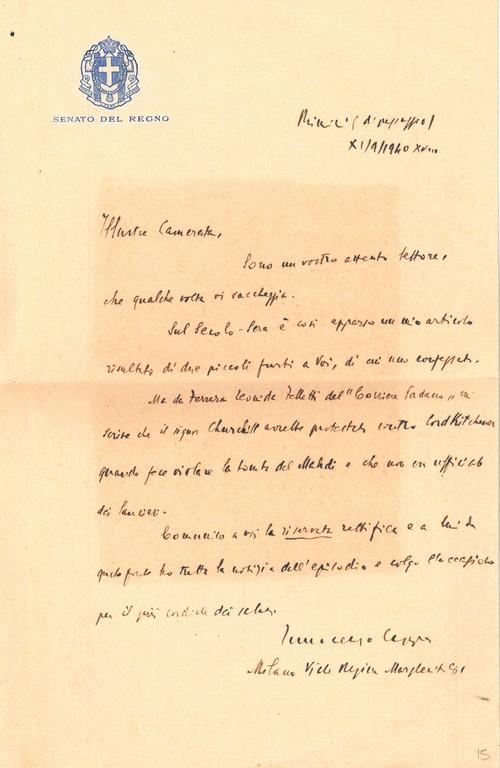 SENATO DEL REGNO
Rimini (di passaggio)
XI/9/1940 XVIII
Illustre Camerata,
Sono un vostro attento lettore,
che qualche volta vi saccheggia.
Sul Secolo-Sera è così apparso un mio articolo
risultato di due piccoli furti a Voi, di cui uno confessato.
Ma da Ferrara Leonida Felletti del "Corriere Padano" mi
scrive che il signor Churchill avrebbe protestato contro Lord Kitchener
quando fece violare la tomba del Mahdi e che non era ufficiale
dei lancieri.
Comunico a voi la riservata rettifica e a lui da
quale fonte ho tratta la notizia dell'episodio e colgo l'occasione
per il più cordiale dei saluti
Innocenzo Cappa
Milano Viale Regina Margherita
15